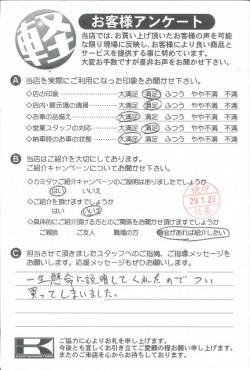 軽
お客様アンケート
当店では、お買い上げ頂いたお客様の声を可能
な限り現場に反映し、お客様により良い商品と
サービスを提供する事に努めています。
大変お手数ですが是非お声をお聞かせ下さい。
A 当店を実際にご利用になった印象をお聞かせ下さい。
◇店の印象 大満足 満足 ふつう やや不満 不満
◇店内・展示場の清掃 大満足 満足 ふつう やや不満 不満
◇お車の品揃え 大満足 満足 ふつう やや不満 不満
◇営業スタッフの対応 大満足 満足 ふつう やや不満 不満
◇納車時のお車の状態 大満足 満足 ふつう やや不満 不満
B 当店はご紹介を大切にしております。
ご紹介キャンペーンについてお聞かせ下さい。
◇カミタケご紹介キャンペーンのご説明はありましたでしょうか
はい いいえ
◇ご紹介を頂けますでしょうか
はい いいえ
◇具体的にご紹介頂ける方とのご関係をお聞かせ頂けますでしょうか
ご親族 ご友人 職場の方 機会があれば紹介したい
C 担当させて頂きましたスタッフへのご指摘、ご指導メッセージを
お願いします。応援メッセージもぜひお願いします。
一生懸命に説明してくれたので つい
買ってしまいました。
K
ご協力に心よりお礼を申し上げます。
今後とも宜しくお引き立てご愛顧の程お願い申し上げます。
またのご来店を心からお待ちしております。